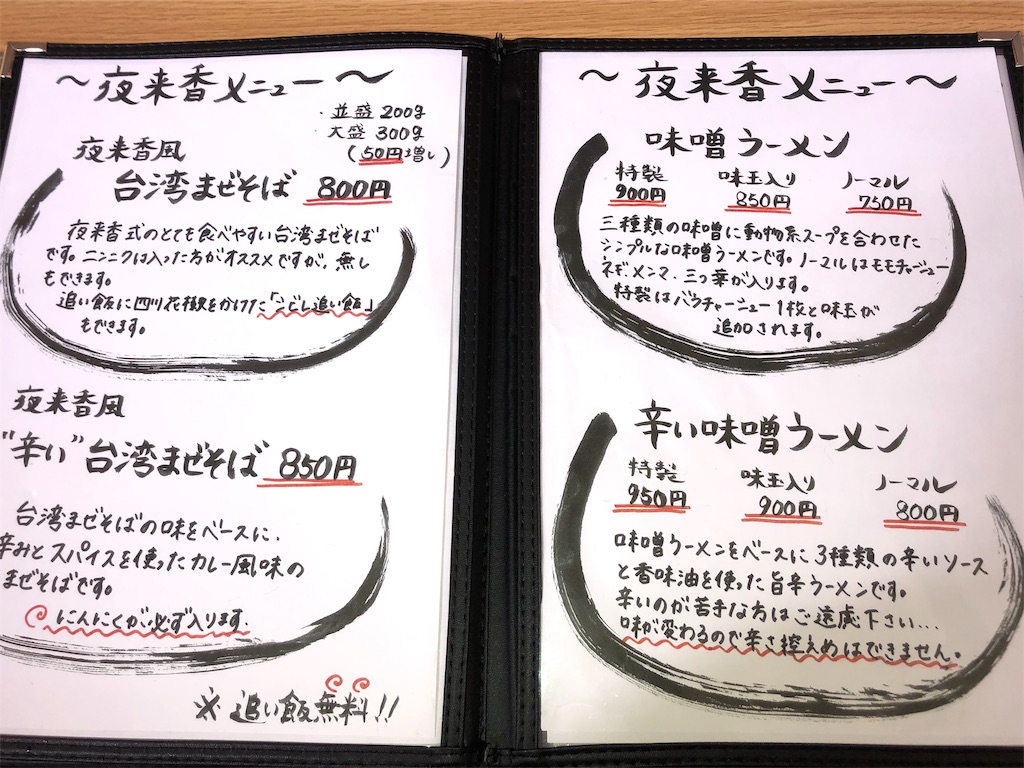 〜夜来香メニュー〜
・並盛 200g
・大盛 300g
(50円増し)
夜来香風
台湾まぜそば 800円
夜来香式のとても食べやすい台湾まぜそば
です。ニンニクは入った方がオススメですが、無し
もできます。
追い飯に四川花椒をかけた「シビレ追い飯」
もできます。
夜来香風
"辛い"台湾まぜそば 850円
台湾まぜそばの味をベースに、
辛みとスパイスを使ったカレー風味の
まぜそばです。
にんにくが必ず入ります。
※ 追い飯無料!!
〜夜来香メニュー〜
味噌ラーメン
特製 味玉入り ノーマル
900円 850円 750円
三種類の味噌に動物系スープを合わせた
シンプルな味噌ラーメンです。ノーマルはモモチャーシュー
ネギ、メンマ、三つ葉が入ります。
特製はバラチャーシュー1枚と味玉が
追加されます。
辛い味噌ラーメン
特製 味玉入り ノーマル
950円 900円 800円
味噌ラーメンをベースに3種類の辛いソース
と香味油を使った旨辛ラーメンです。
辛いのが苦手な方はご遠慮下さい...
味が変わるので辛さ控えめはできません。